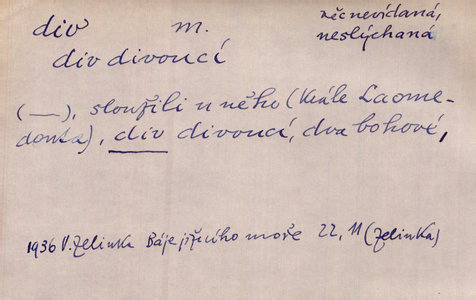 div m. něc nevídaná,
neslýchaná
div divoucí
(—), sloužili u něho (Krále Laome-
donta), div divoucí, dva bohové,
1936 V. Zelinka Báje jižního moře 22, 11 (Zelinka)